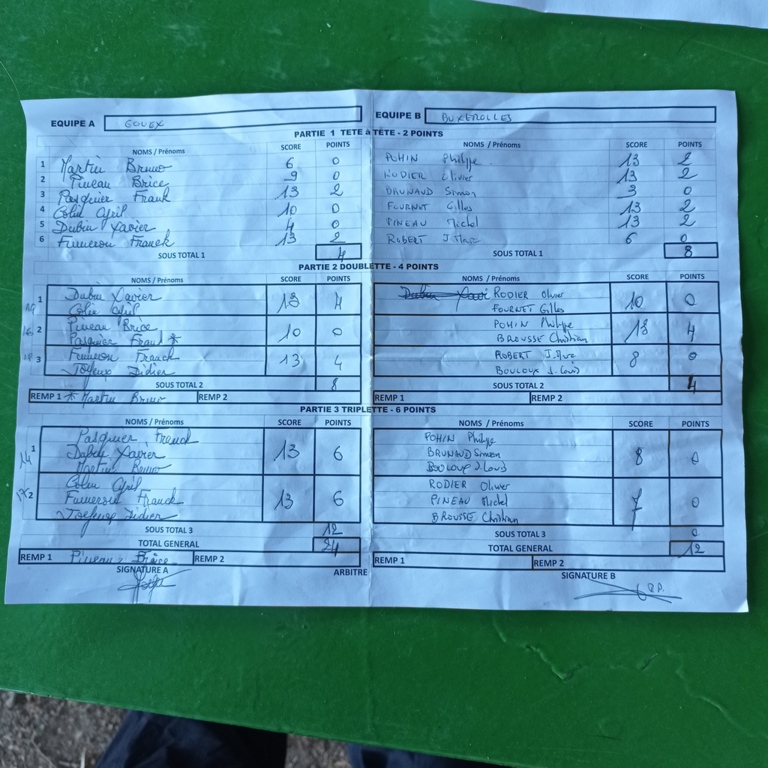 EQUIPE A GOUEX EQUIPE B BUXEROLLES
PARTIE 1 TETE à TÊTE - 2 POINTS
NOMS / Prénoms SCORE POINTS NOMS / Prénoms SCORE POINTS
1 Martin Bruno 6 0 POHIN Philippe 13 2
2 Pineau Brice 9 0 RODIER Olivier 13 2
3 Pasquier Frank 13 2 BRUNAUD Simon 3 0
4 Colin Cyril 10 0 FOURNET Gilles 13 2
5 Dubin Xavier 4 0 PINEAU Michel 13 2
6 Fumeron Franck 13 2 ROBERT J.Marc 6 0
SOUS TOTAL 1 4 SOUS TOTAL 1 8
PARTIE 2 DOUBLETTE - 4 POINTS
NOMS / Prénoms SCORE POINTS NOMS / Prénoms SCORE POINTS
1 Dubin Xavier 13 4 RODIER Olivier 10 0
Colin Cyril FOURNET Gilles
2 Pineau Brice 10 0 POHIN Philippe 13 4
Pasquier Frank * BROUSSE Christian
3 Fumeron Franck 13 4 ROBERT J.Marc 8 0
Joyeux Didier BOULOUX J.Louis
SOUS TOTAL 2 8 SOUS TOTAL 2 4
REMP 1 * Martin Bruno REMP 2 REMP 1 REMP 2
PARTIE 3 TRIPLETTE - 6 POINTS
NOMS / Prénoms SCORE POINTS NOMS / Prénoms SCORE POINTS
1 Pasquier Franck 13 6 POHIN Philippe 8 0
Dubin Xavier BRUNAUD Simon
Martin Bruno BOULOUX J Louis
2 Colin Cyril 13 6 RODIER Olivier 7 0
Fumeron Franck PINEAU Michel
Joyeux Didier BROUSSE Christian
SOUS TOTAL 3 12 SOUS TOTAL 3 0
TOTAL GENERAL 24 TOTAL GENERAL 12
REMP 1 Pineau Brice REMP 2 REMP 1 REMP 2
SIGNATURE A ARBITRE SIGNATURE B